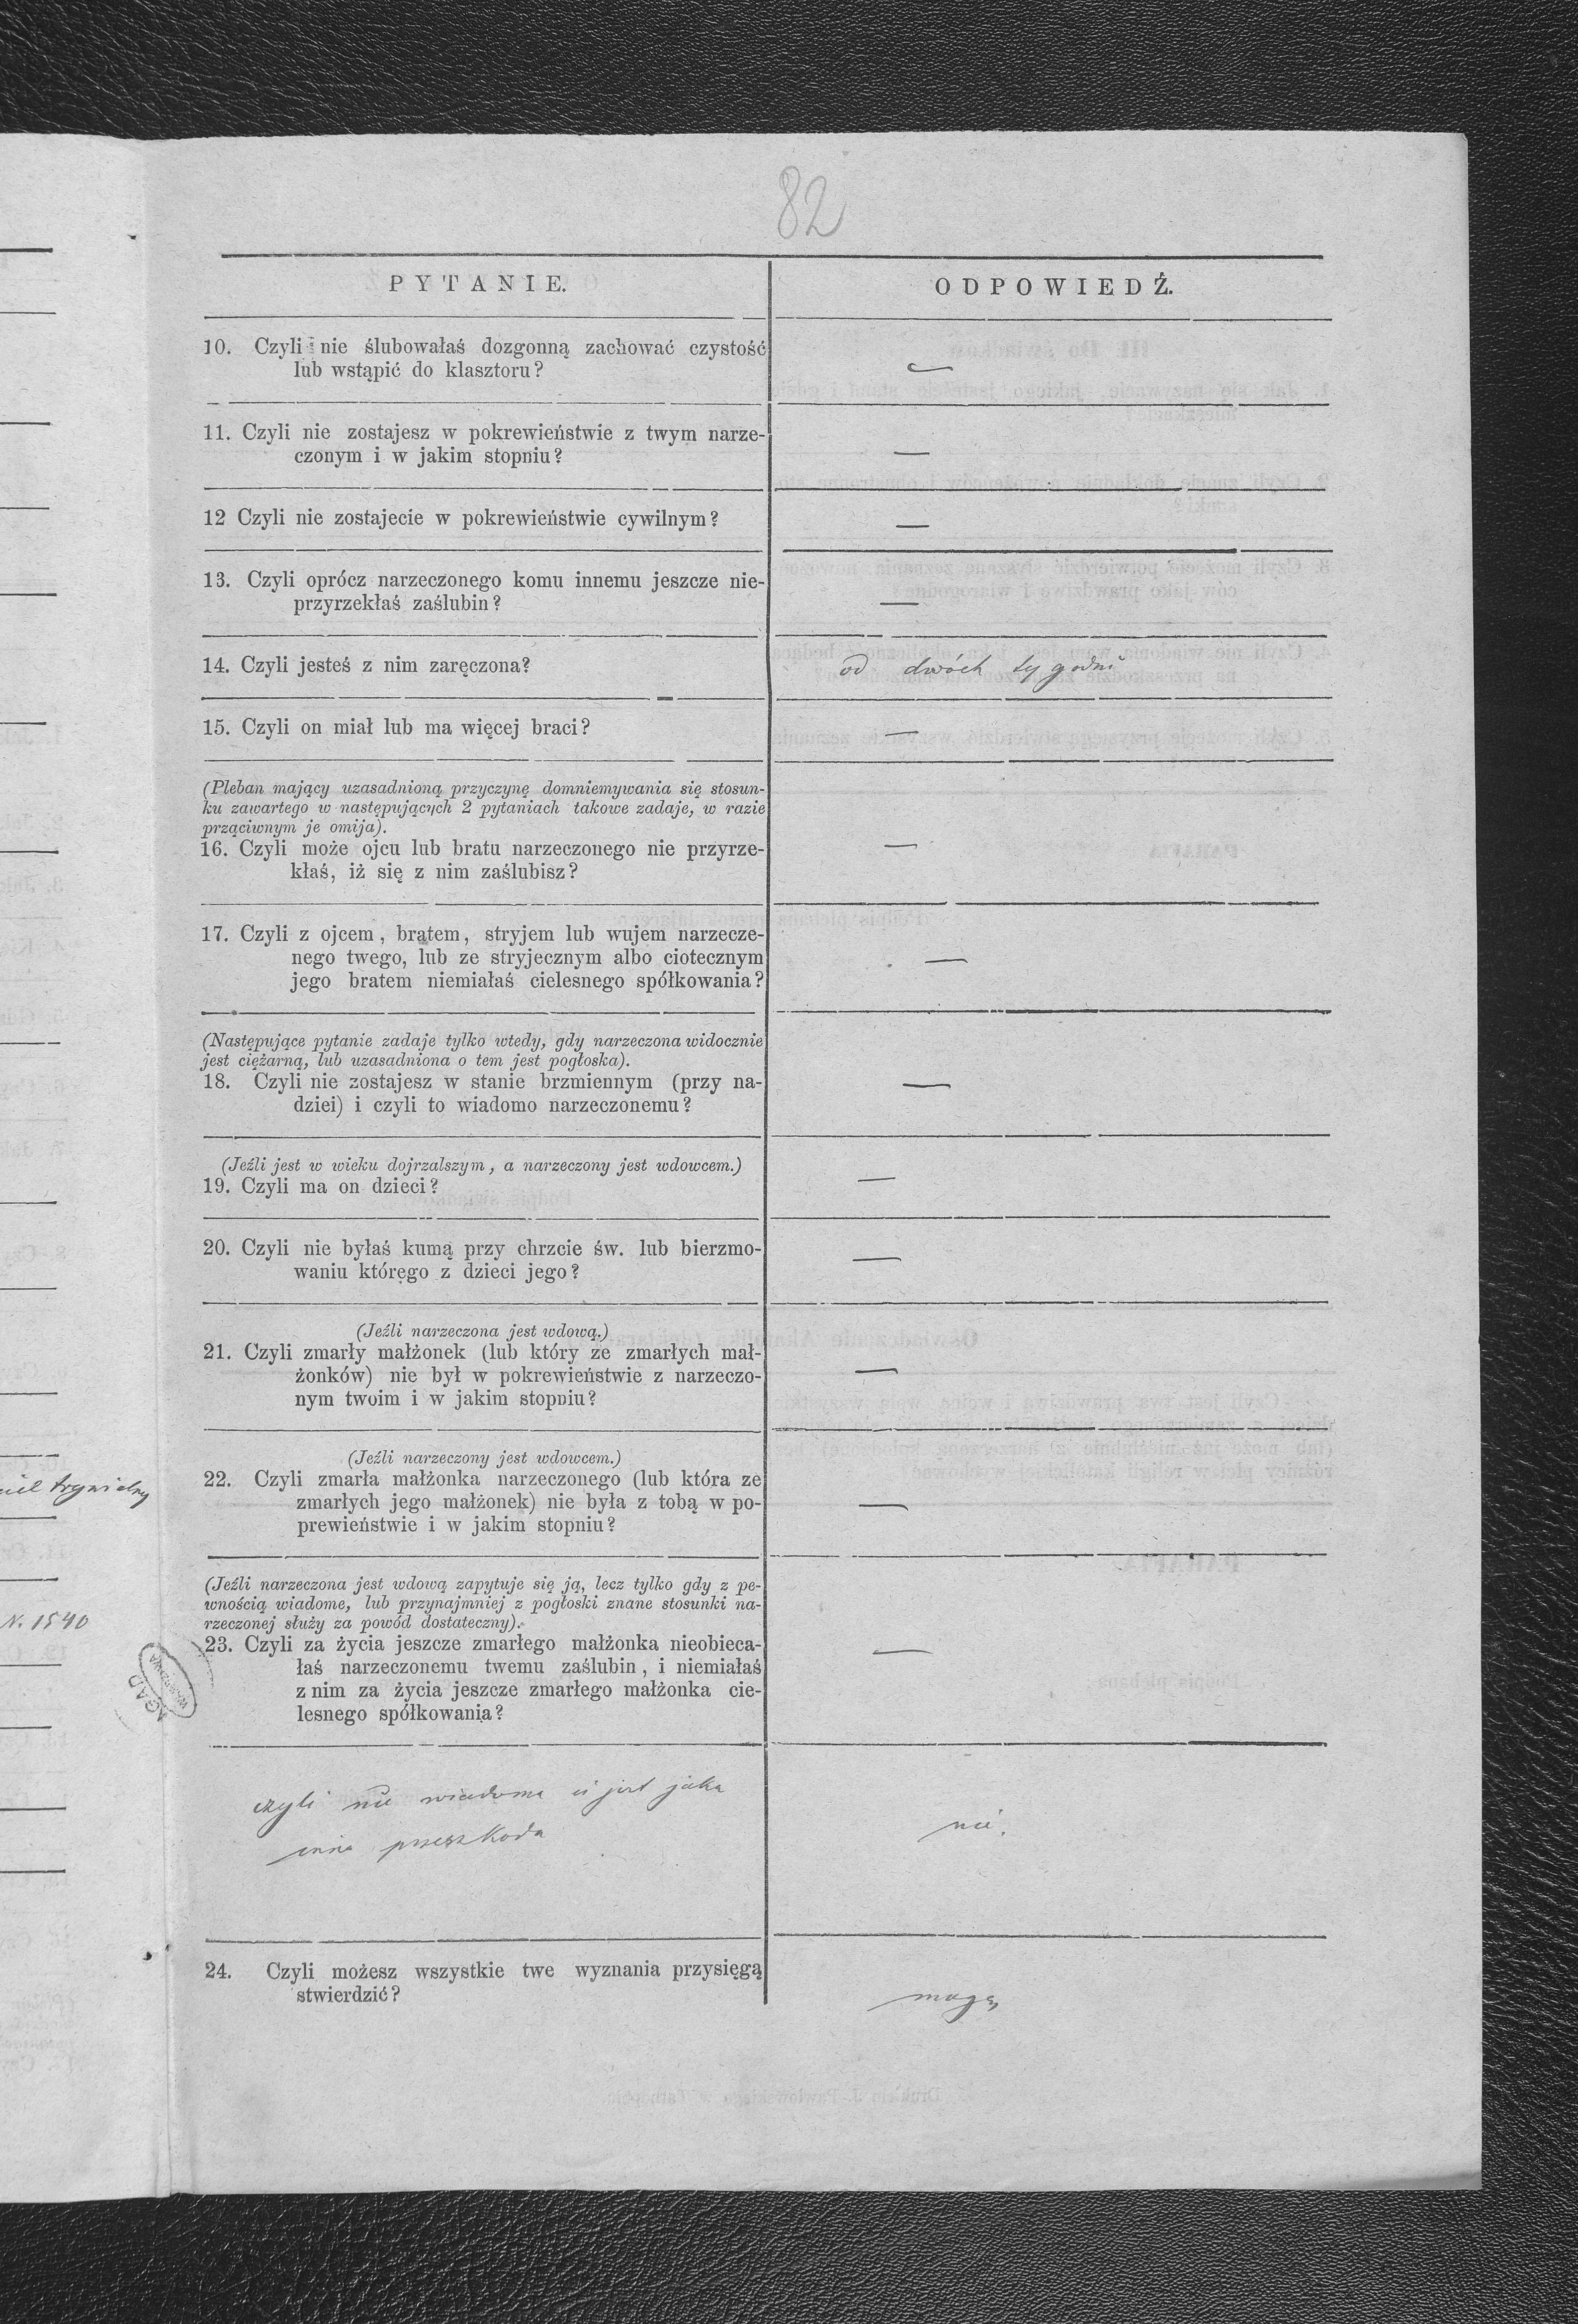 82
PYTANIE.
ODPOWIEDŹ.
10. Czyli nie ślubowałaś dozgonną zachować czystość
lub wstąpić do klasztoru?
—
11. Czyli nie zostajesz w pokrewieństwie z twym narze-
czonym i w jakim stopniu?
—
12 Czyli nie zostajecie w pokrewieństwie cywilnym?
—
13. Czyli oprócz narzeczonego komu innemu jeszcze nie-
przyrzekłaś zaślubin?
—
14. Czyli jesteś z nim zaręczona?
od dwóch tygodni
15. Czyli on miał lub ma więcej braci?
—
(Pleban mający uzasadnioną przyczynę domniemywania się stosun-
ku zawartego w następujących 2 pytaniach takowe zadaje, w razie
prząciwnym je omija).
16. Czyli może ojcu lub bratu narzeczonego nie przyrze-
kłaś, iż się z nim zaślubisz?
—
17. Czyli z ojcem, bratem, stryjem lub wujem narzecze-
nego twego, lub ze stryjecznym albo ciotecznym
jego bratem niemiałaś cielesnego spółkowania?
—
(Następujące pytanie zadaje tylko wtedy, gdy narzeczona widocznie
jest ciężarną, lub uzasadniona o tem jest pogłoska).
18. Czyli nie zostajesz w stanie brzmiennym (przy na-
dziei) i czyli to wiadomo narzeczonemu?
—
(Jeźli jest w wieku dojrzalszym, a narzeczony jest wdowcem.)
19. Czyli ma on dzieci?
—
20. Czyli nie byłaś kumą przy chrzcie św. lub bierzmo-
waniu którego z dzieci jego?
—
(Jeźli narzeczona jest wdową.)
21. Czyli zmarły małżonek (lub który ze zmarłych mał-
żonków) nie był w pokrewieństwie z narzeczo-
nym twoim i w jakim stopniu?
—
(Jeźli narzeczony jest wdowcem.)
22. Czyli zmarła małżonka narzeczonego (lub która ze
zmarłych jego małżonek) nie była z tobą w po-
prewieństwie i w jakim stopniu?
—
(Jeźli narzeczona jest wdową zapytuje się ją, lecz tylko gdy z pe-
wnością wiadome, lub przynajmniej z pogłoski znane stosunki na-
rzeczonej służy za powód dostateczny).
23. Czyli za życia jeszcze zmarłego małżonka nieobieca-
łaś narzeczonemu twemu zaślubin, i niemiałaś
z nim za życia jeszcze zmarłego małżonka cie-
lesnego spółkowania?
—
czyli nie wiadoma ci jest jaka
inna przeszkoda
nie.
24. Czyli możesz wszystkie twe wyznania przysięgą
stwierdzić?
mogę
N. 1540
AGAD